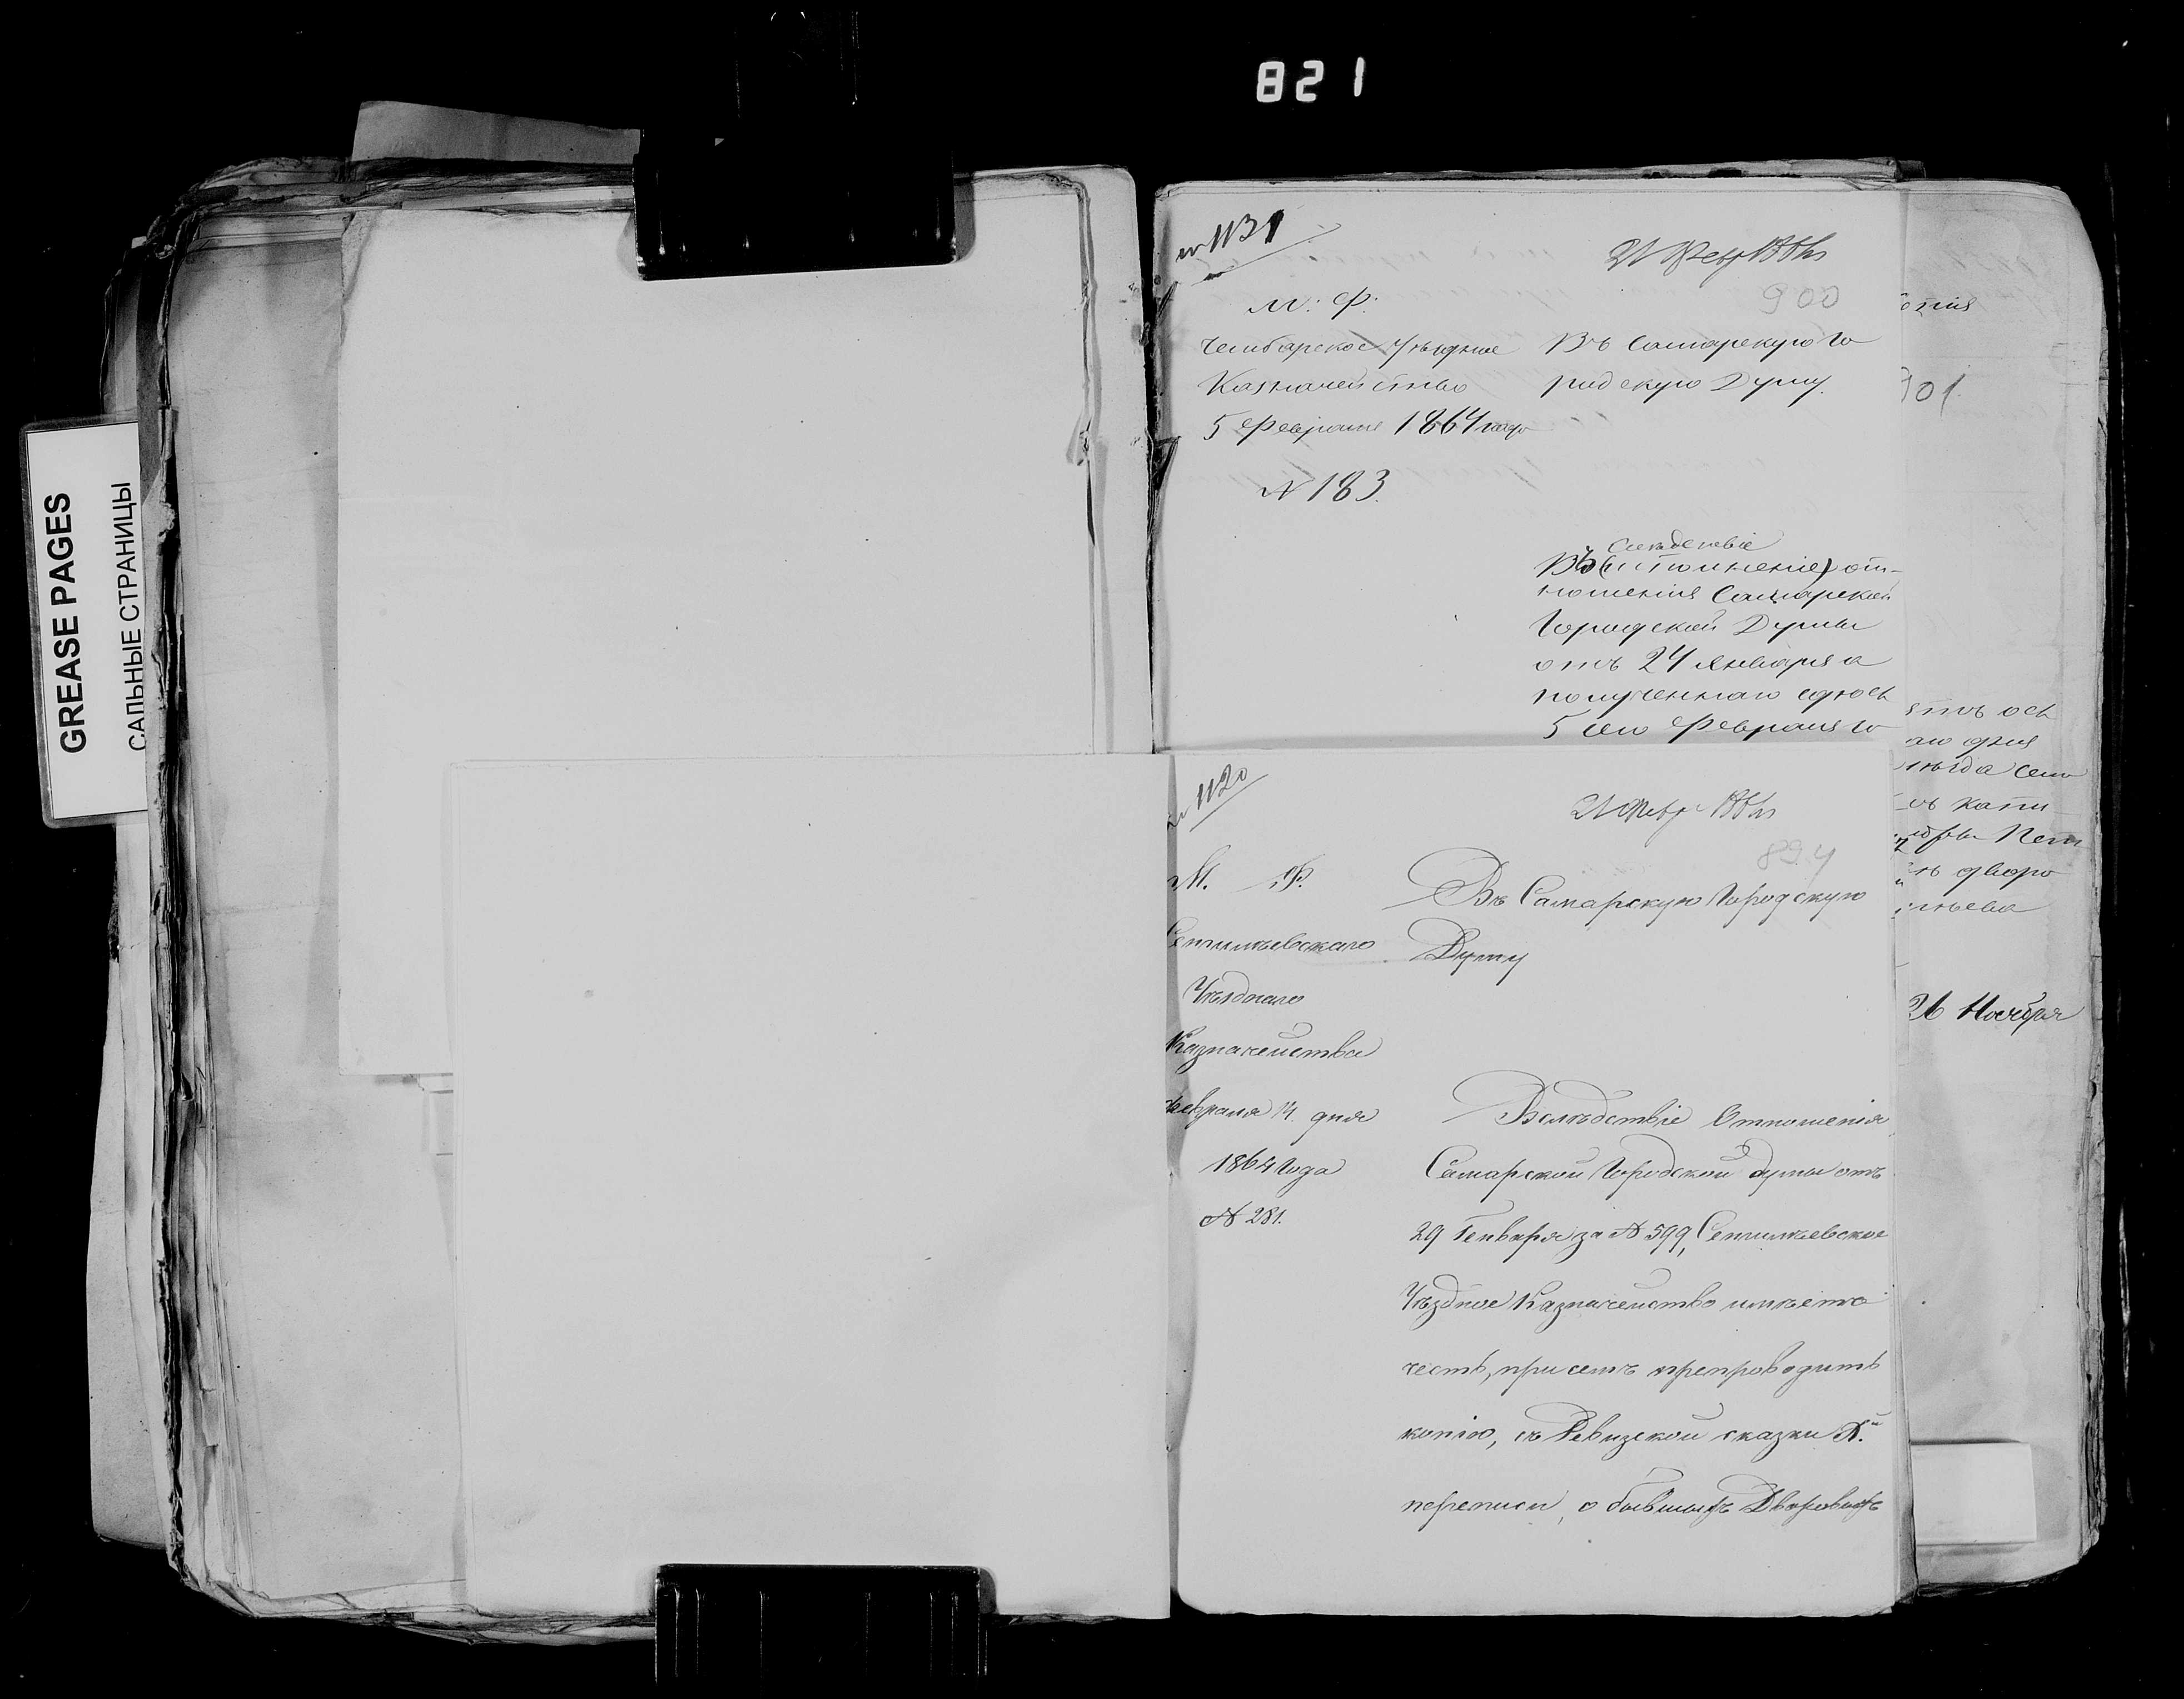 821
GREASE PAGES
САЛЬНЫЕ СТРАНИЦЫ
1131
21 Февр 1864
900
М. Ф.
Чембарское Уѣздное
Казначейство
5 Февраля 1864 года
№ 183.
Въ Самарскую Го
родскую Думу.
Слѣдствіе
Въ (исполненіе) от-
ношенія Самарской
Городской Думы
отъ 24 Января а
полученнаго здѣсь
5 сего Февраля
копія
901
26 Ноября
1120
21 Февр 1864
894
М. Ф.
Сенгилѣевскаго
Уѣзднаго
Казначейства
Февраля 14 дня
1864 Года
№ 281.
Въ Самарскую Городскую
Думу
Вслѣдствіе Отношенія
Самарской Городской думы отъ
29 Генваря за № 599, Сенгилѣевское
Уѣздное Казначейство имѣетъ
честь, при семъ препроводить
копію, съ Ревизской сказки X.й
переписи, о бывшихъ Дворовыхъ